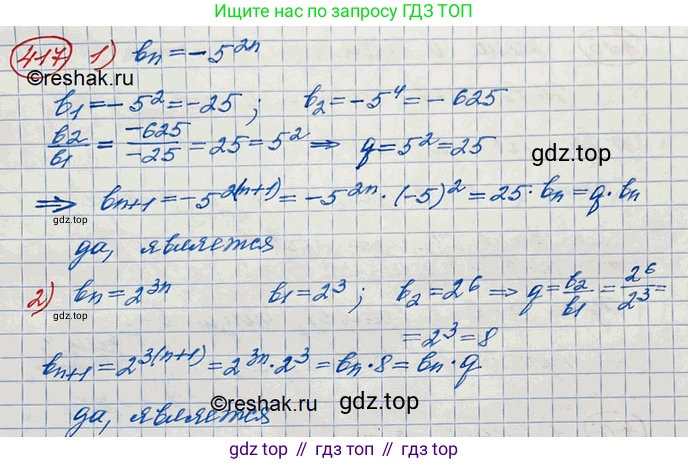 Ищите нас по запросу ГДЗ ТОП
417 1) bn = -5^2n
©reshak.ru
b1 = -5^2 = -25 ; b2 = -5^4 = -625
b2/b1 = -625/-25 = 25 = 5^2 ⇒ q = 5^2 = 25
gdz.top
⇒ bn+1 = -5^2(n+1) = -5^2n · (-5)^2 = 25 · bn = q · bn
gdz.top
да, является
2) bn = 2^3n b1 = 2^3 ; b2 = 2^6 ⇒ q = b2/b1 = 2^6/2^3 =
gdz.top
= 2^3 = 8
bn+1 = 2^3(n+1) = 2^3n · 2^3 = bn · 8 = bn · q
да, является
©reshak.ru gdz.top
gdz.top // гдз топ // гдз.топ